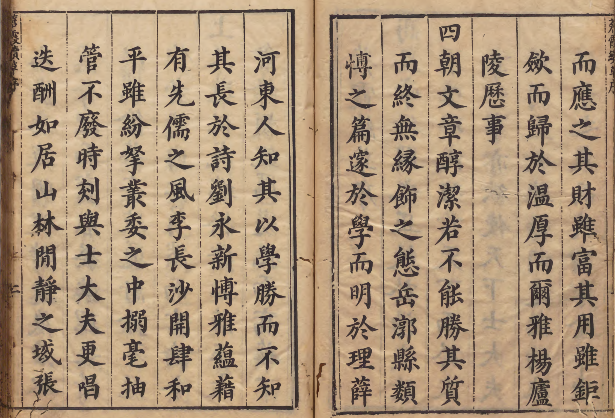 而應之其財雖富其用雖鉅
斂而歸於温厚而爾雅楊廬
陵歷事
四朝文章醇潔若不能勝其質
而終無緣飾之態岳漷縣類
愽之篇邃於學而明於理薛
河東人知其以學勝而不知
其長於詩劉永新愽雅蘊藉
有先儒之風李長沙開肆和
平雖紛拏叢委之中搦毫抽
管不廢時刻與士大夫更唱
迭酬如居山林閒靜之域張